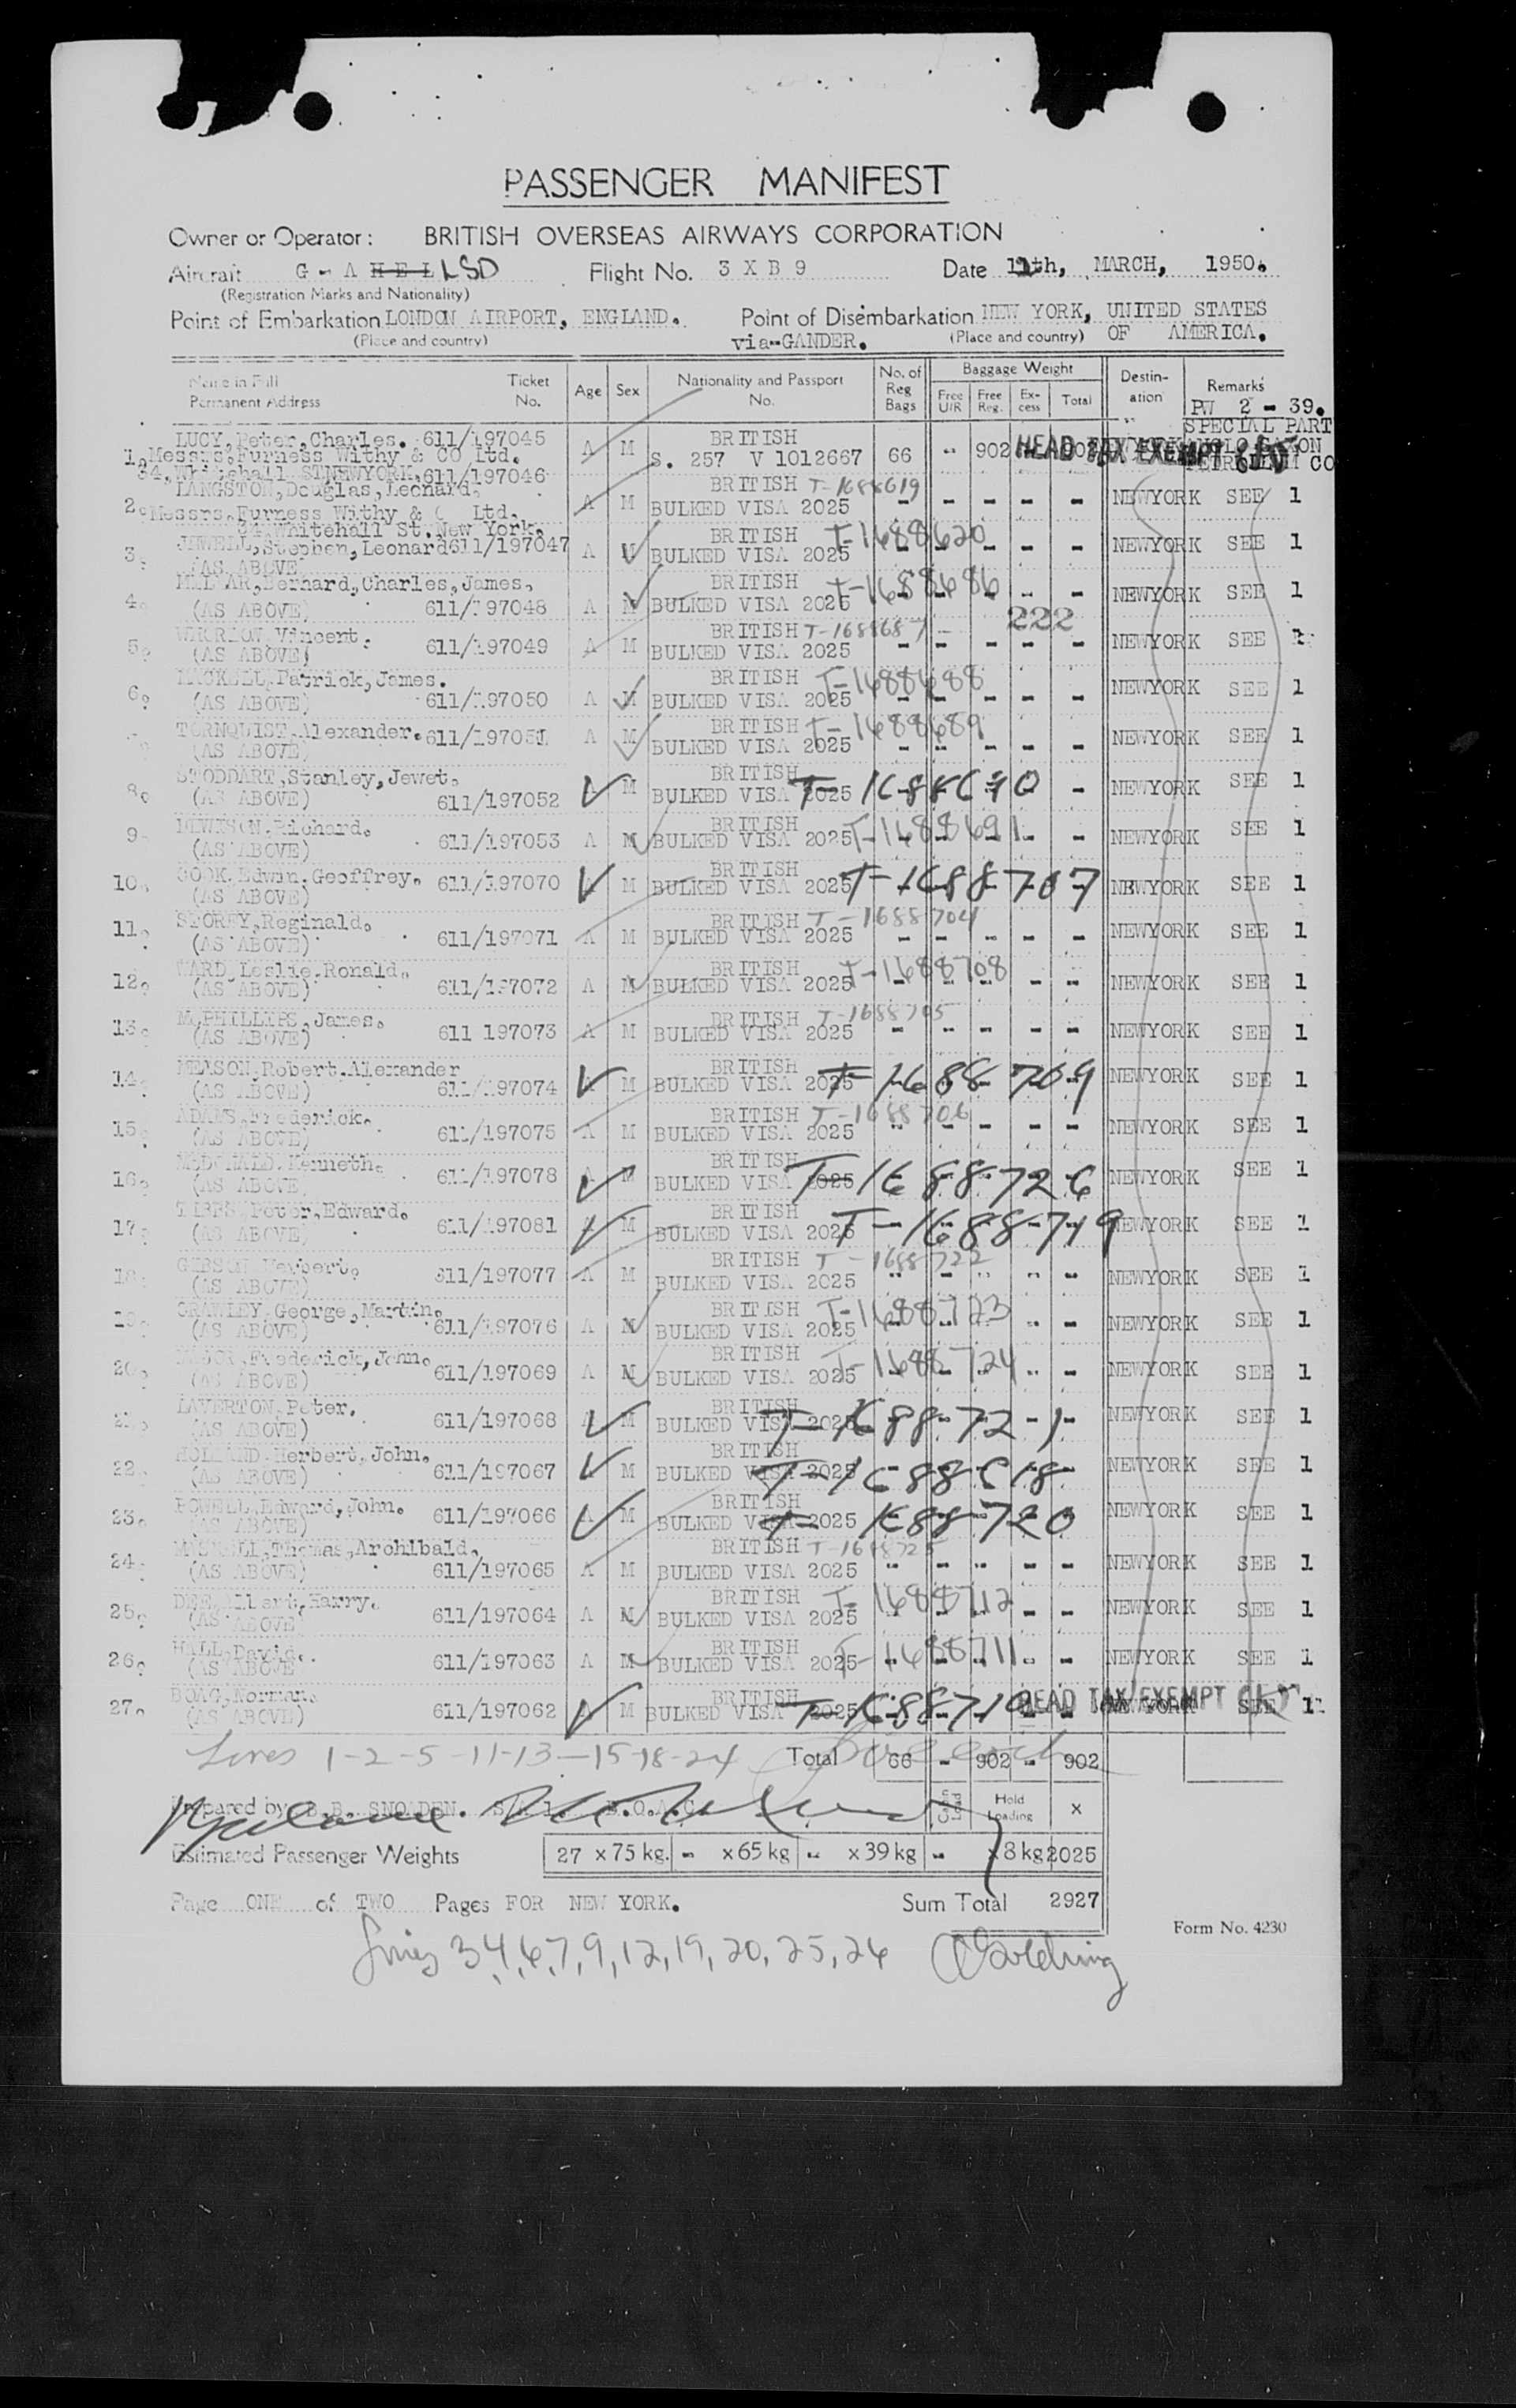 PASSENGER MANIFEST
Owner or Operator: BRITISH OVERSEAS AIRWAYS CORPORATION
Aircraft G - A H E L LSD Flight No. 3 X B 9 Date 11th, MARCH, 1950.
(Registration Marks and Nationality)
Point of Embarkation LONDON AIRPORT, ENGLAND. Point of Disembarkation NEW YORK, UNITED STATES
(Place and country) via-GANDER. (Place and country) OF AMERICA.
Name in Full Permanent Address Ticket No. Age Sex Nationality and Passport No. No. of Reg Bags Baggage Weight Free U/R Free Reg. Excess Total Destination Remarks
PW 2 - 39.
SPECIAL PART
LUCY, Peter, Charles. 611/197045 A M BRITISH
1. Messrs. Furness Withy & CO Ltd. S. 257 V 1012667 66 - 902 HEAD TAX EXEMPT
34, Whitehall ST NEWYORK, 611/197046 PETROLEUM CO
LANGSTON, Douglas, Leonard, A M BRITISH T-1688619
2. Messrs. Furness Withy & Ltd. BULKED VISA 2025 - - - - - NEWYORK SEE 1
34, Whitehall St. New York.
JEWELL, Stephen, Leonard 611/197047 A M BRITISH T-1688620
3. (AS ABOVE) BULKED VISA 2025 - - - - - NEWYORK SEE 1
Bernard, Charles, James, BRITISH T-1688686
4. (AS ABOVE) 611/197048 A M BULKED VISA 2025 - - - - - NEWYORK SEE 1
222
Vincent. BRITISH T-1688687
5. (AS ABOVE) 611/197049 A M BULKED VISA 2025 - - - - - NEWYORK SEE 1
Patrick, James. BRITISH T-1688688
6. (AS ABOVE) 611/197050 A M BULKED VISA 2025 - - - - - NEWYORK SEE 1
TORNQUIST, Alexander. 611/197051 A M BRITISH T-1688689
(AS ABOVE) BULKED VISA 2025 - - - - - NEWYORK SEE 1
STODDART, Stanley, Jewet, BRITISH
8. (AS ABOVE) 611/197052 A M BULKED VISA 2025 T-1688690 - NEWYORK SEE 1
Richard. BRITISH
9. (AS ABOVE) 611/197053 A M BULKED VISA 2025 T-1688691 - - NEWYORK SEE 1
COOK, Edwin, Geoffrey. BRITISH
10. (AS ABOVE) 611/197070 M BULKED VISA 2025 T-1688707 NEWYORK SEE 1
STOREY, Reginald. BRITISH T-1688704
11. (AS ABOVE) 611/197071 A M BULKED VISA 2025 - - - - - NEWYORK SEE 1
WARD, Leslie, Ronald. BRITISH T-1688708
12. (AS ABOVE) 611/197072 A M BULKED VISA 2025 - - NEWYORK SEE 1
James. BRITISH T-1688705
13. (AS ABOVE) 611 197073 A M BULKED VISA 2025 - - - - - NEWYORK SEE 1
Robert. Alexander BRITISH
14. (AS ABOVE) 611/197074 M BULKED VISA 2025 T-1688709 NEWYORK SEE 1
ADAMS, Frederick. BRITISH T-1688706
15. (AS ABOVE) 611/197075 A M BULKED VISA 2025 - - - - - NEWYORK SEE 1
McDONALD. Kenneth. BRITISH
16. (AS ABOVE 611/197078 A M BULKED VISA 2025 T-1688726 NEWYORK SEE 1
Peter, Edward. BRITISH
17. (AS ABOVE 611/197081 M BULKED VISA 2025 T-1688719 NEWYORK SEE 1
GIBSON, Herbert. BRITISH T-1688722
18. (AS ABOVE) 611/197077 A M BULKED VISA 2025 - - - - - NEWYORK SEE 1
CRAWLEY, George, Martin. BRITISH T-1688723
19. (AS ABOVE) 611/197076 A M BULKED VISA 2025 - - NEWYORK SEE 1
Frederick, John. BRITISH T-1688724
20. (AS ABOVE) 611/197069 A M BULKED VISA 2025 - - NEWYORK SEE 1
LAVERTON, Peter. BRITISH
21. (AS ABOVE) 611/197068 M BULKED VISA 2025 T-1688721 NEWYORK SEE 1
HOLLAND. Herbert, John. BRITISH
22. (AS ABOVE) 611/197067 M BULKED VISA 2025 T-1688618 NEWYORK SEE 1
POWELL, Edward, John. BRITISH
23. (AS ABOVE) 611/197066 A M BULKED VISA 2025 T-1688720 NEWYORK SEE 1
Thomas, Archibald. BRITISH T-1688725
24. (AS ABOVE) 611/197065 A M BULKED VISA 2025 - - - - - NEWYORK SEE 1
Albert, Harry. BRITISH T-1688712
25. (AS ABOVE 611/197064 A M BULKED VISA 2025 - - NEWYORK SEE 1
HALL, David. BRITISH
26. (AS ABOVE 611/197063 A M BULKED VISA 2025 T-1688711 - - NEWYORK SEE 1
BOAG, Norman. BRITISH HEAD TAX EXEMPT
27. (AS ABOVE) 611/197062 A M BULKED VISA 2025 T-1688710 NEWYORK SEE 1
Lines 1-2-5-11-13-15-18-24 Total 66 - 902 - 902
Prepared by B.B. SNOADEN. B.O.A.C. Hold Loading x
Estimated Passenger Weights 27 x 75 kg. - x 65 kg - x 39 kg - x 8 kg 2025
Page ONE of TWO Pages FOR NEW YORK. Sum Total 2927
Form No. 4230
Lines 3,4,6,7,9,12,19,20,25,26